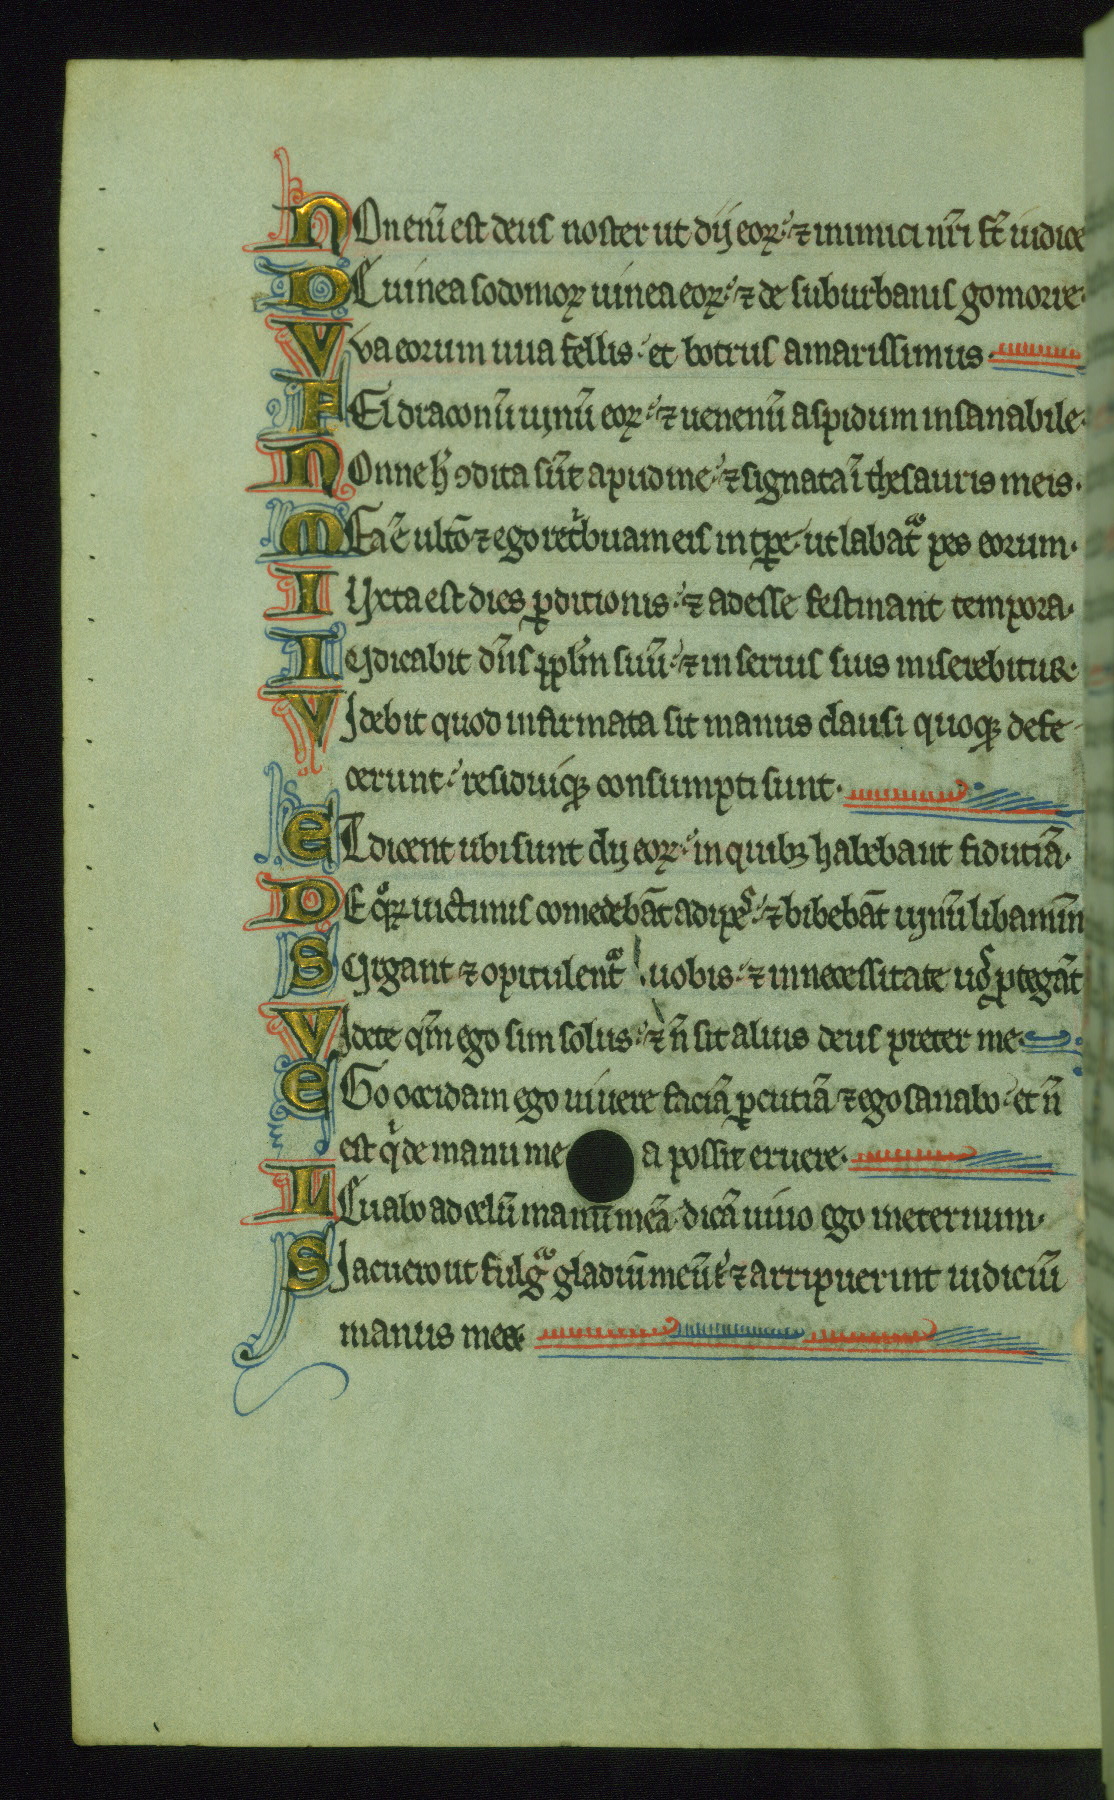 NOn eni᷑ est deus noster ut dij eoꝝ. ⁊ inimici nr̃i st̃ iudice
DE uinea sodomoꝝ uinea eoꝝ. ⁊ de suburbanis gomorre.
Vva eorum uua fellis. et botrus amarissimus.
FEl draconũ uinũ eoꝝ. ⁊ uenenũ aspidum insanabile.
NOnne h̃ ↄdita sũt apud me. ⁊ signata ĩ thesauris meis.
MEa ẽ ultõ ⁊ ego ret̃buam eis in tꝑe. ut labat᷑ pes eorum.
IUxta est dies ꝑditionis. ⁊ adesse festinant tempora.
IUdicabit dñs ppl̃m suũ. ⁊ in seruis suis miserebitur.
VIdebit quod infirmata sit manus clausi quoqꝫ defe
cerunt. residuiqꝫ consumpti sunt.
ET dicent ubi sunt dij eoꝝ. in quibꝫ habebant fiduciã.
DE qͦꝝ uictimis comedebãt adipes. ⁊ bibebãt uinũ libaminũ
SUrgant ⁊ opitulent᷑ uobis. ⁊ in necessitate uos ꝓtegãt
VIdete qm̃ ego sim solus. ⁊ ñ sit alius deus preter me.
EGo occidam ego uiuere faciã ꝑcutiã ⁊ ego sanabo. et ñ
est qͥ de manu me a possit eruere.
LEuabo ad celũ manũ meã. dicã uiuo ego in eternum.
SI acuero ut fulgᷓ gladiũ meũ. ⁊ arripuerint iudiciũ
manus mee.